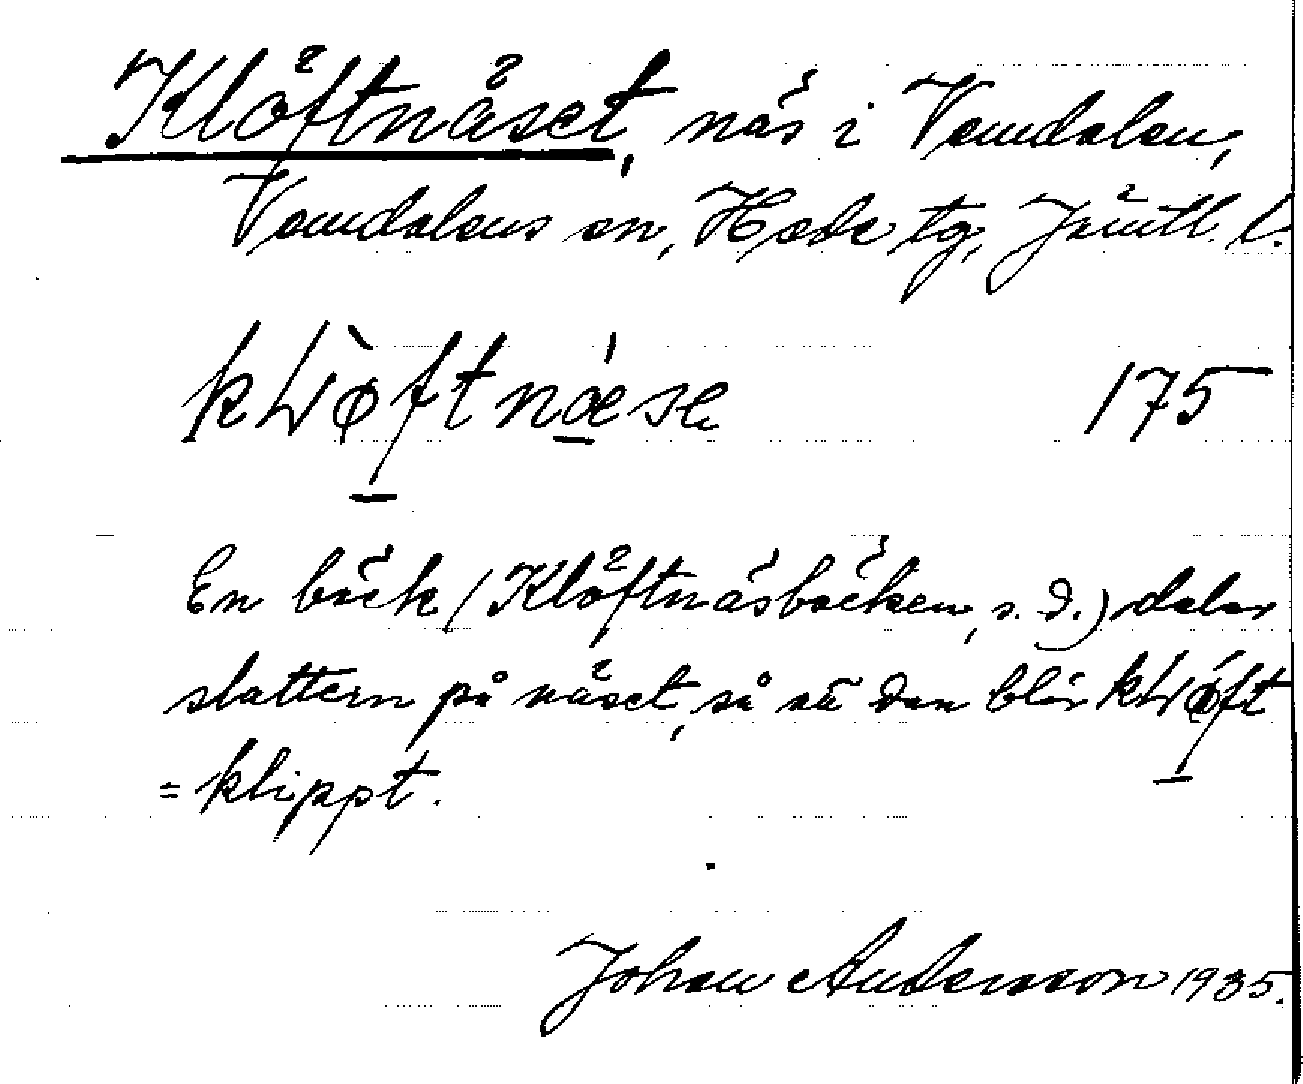 Klöftnäset, näs i Vemdalen,
Vemdalens sn, Hede tg, Jämtl. l.
klöftnäse 175
En bäck (Klöftnäsbäcken, s. d.) delar
slåttern på näset, så att den blir klöft
= klippt.
Johan Andersson 1935.